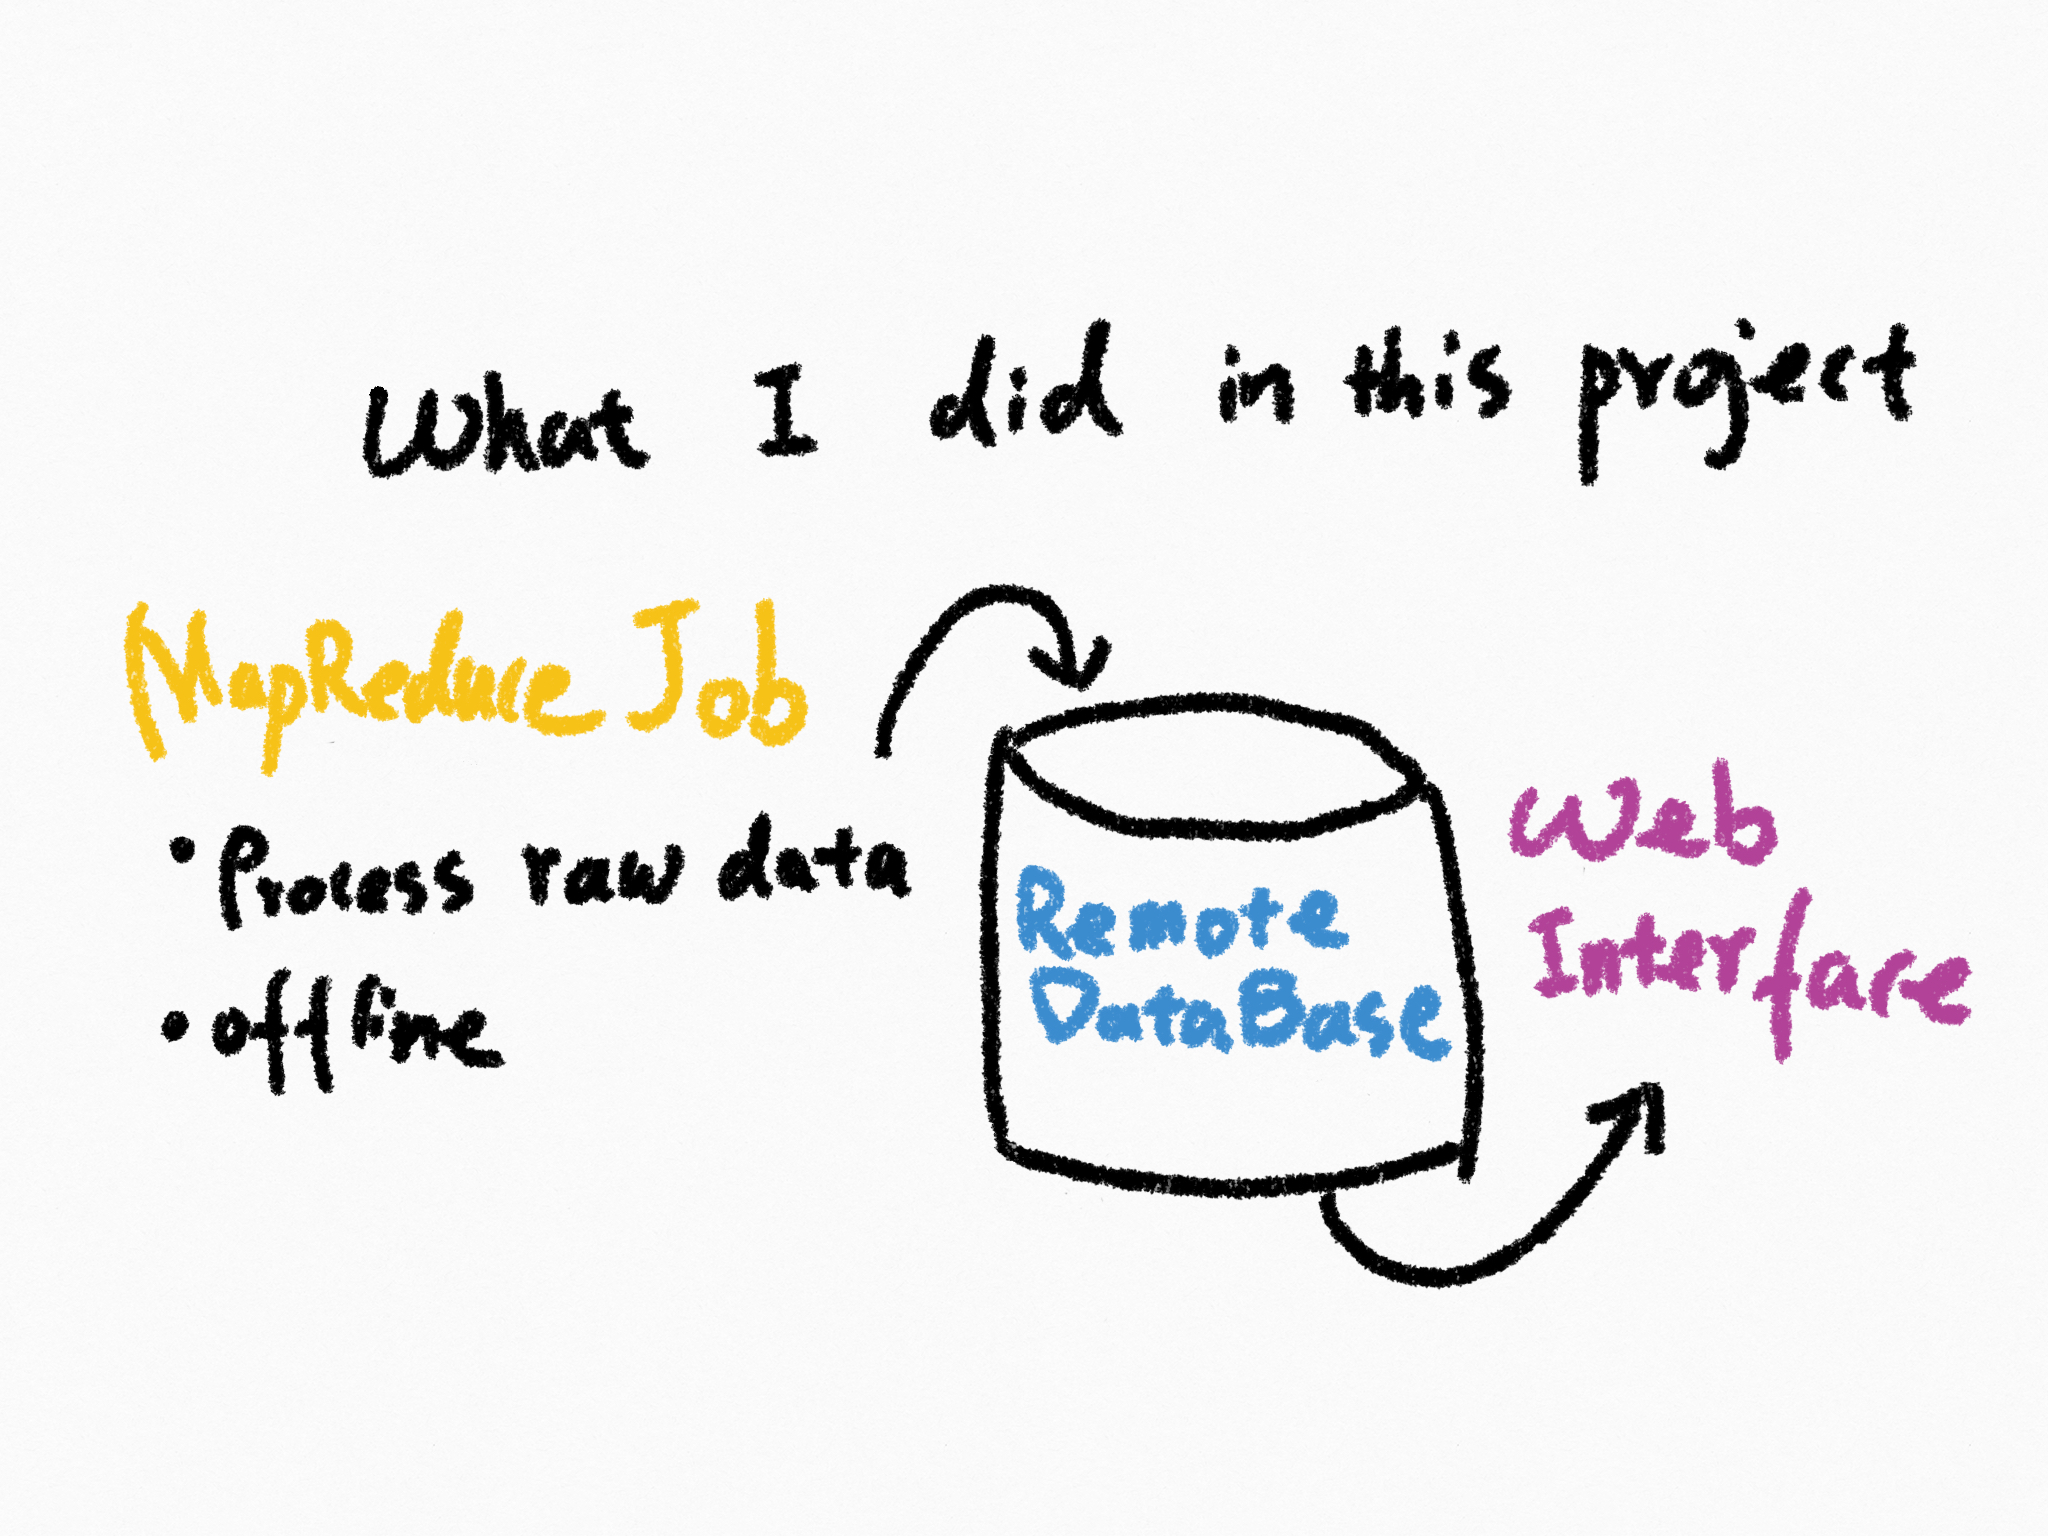 What I did in this project
MapReduce Job
• Process raw data
• offline
Remote
DataBase
Web
Interface